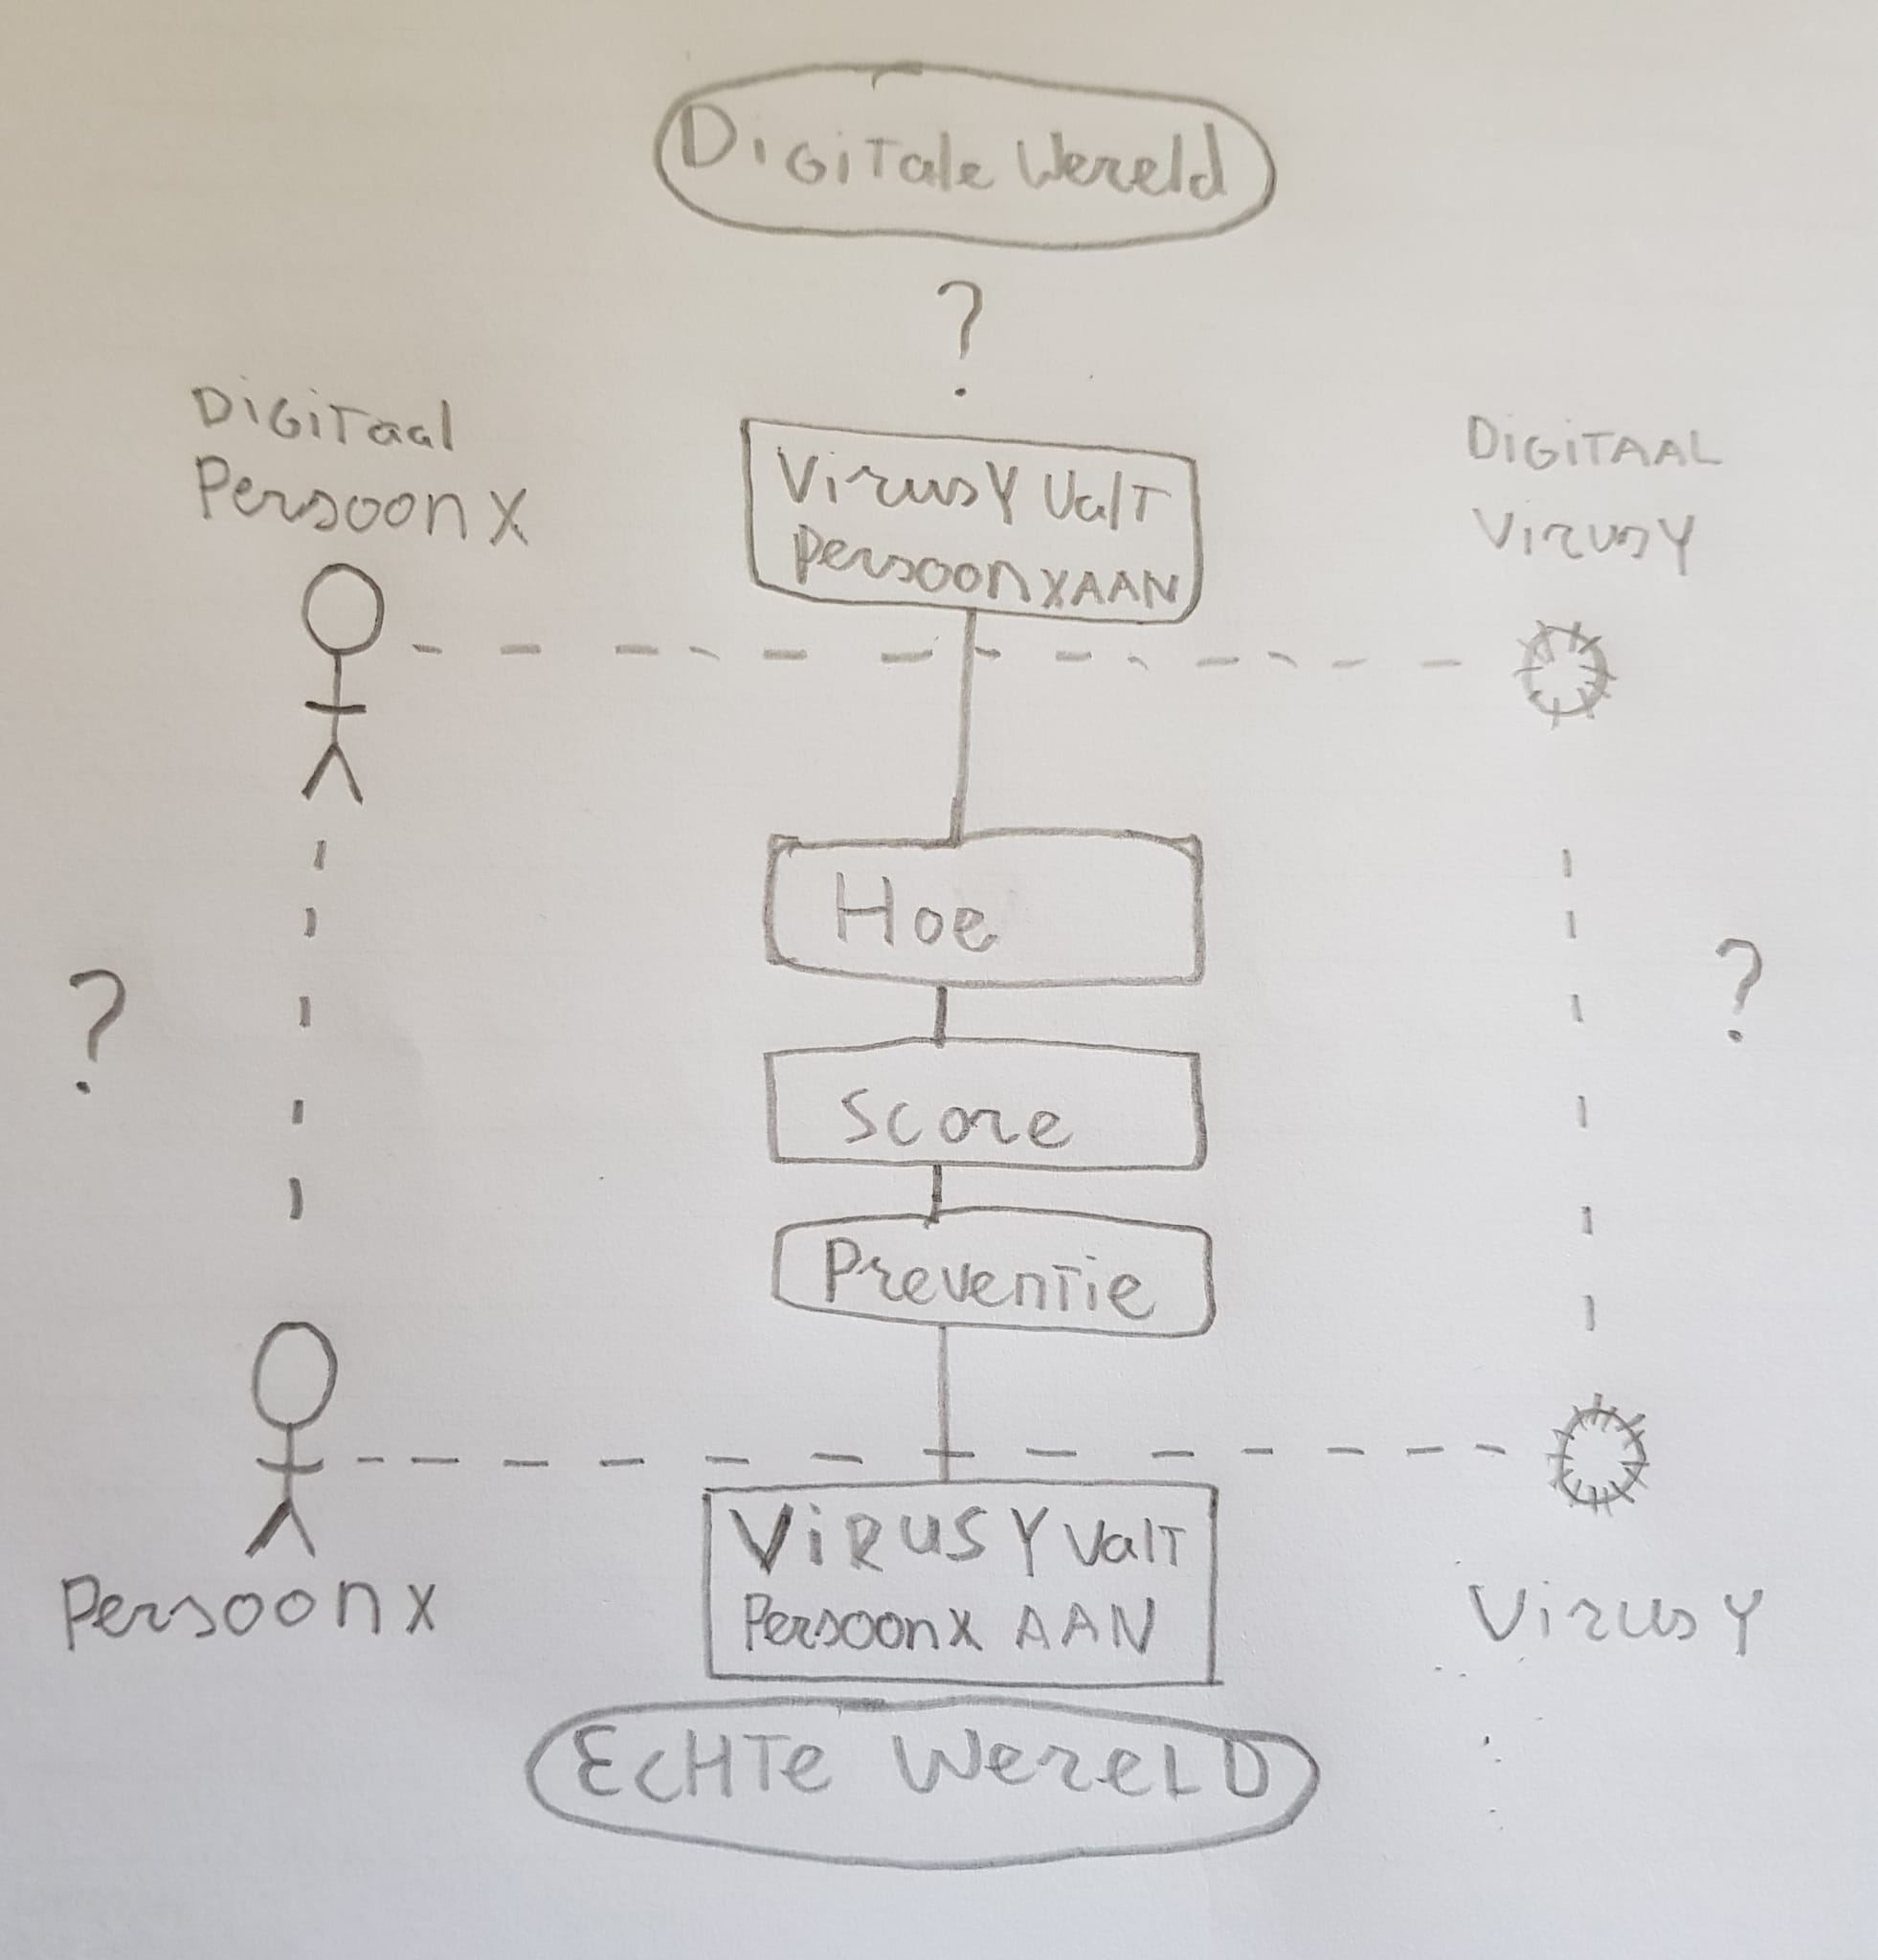 Digitale Wereld
?
Digitaal
Persoon X
Virus Y valt
Persoon X AAN
DIGITAAL
Virus Y
Hoe
?
?
Score
Preventie
Persoon X
VIRUS Y valt
Persoon X AAN
Virus Y
ECHTE WERELD